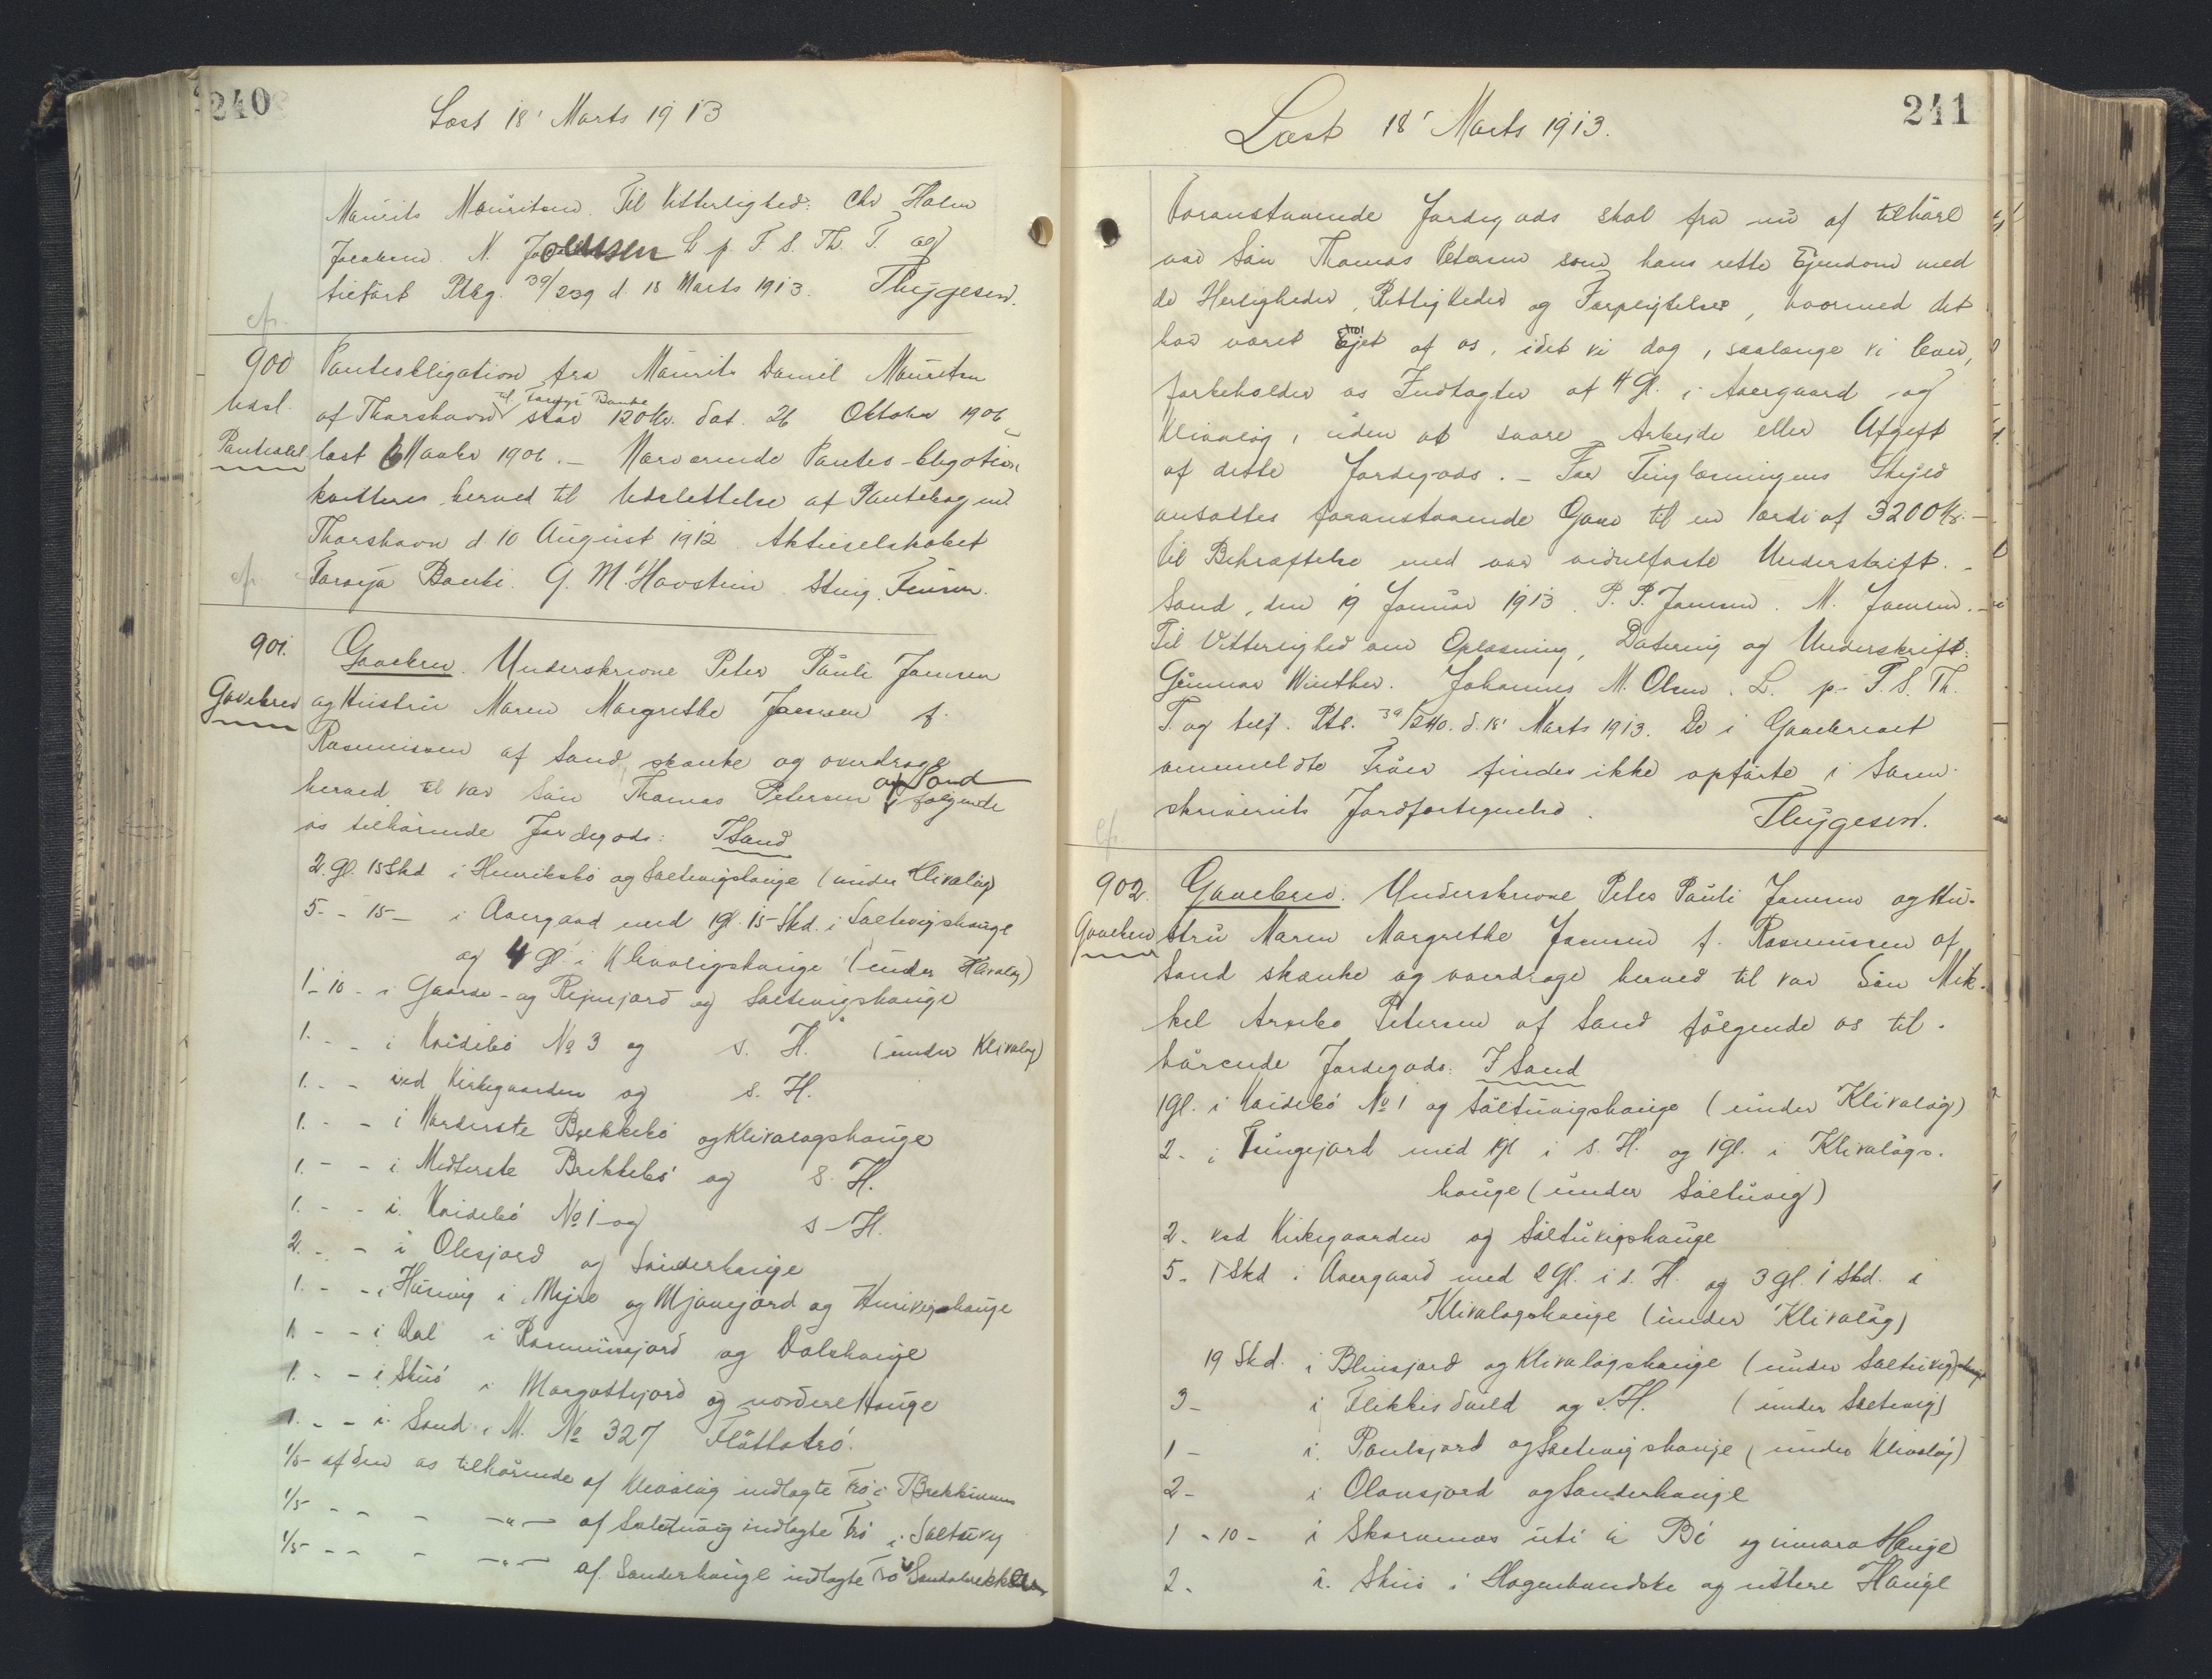 240
Læst 18' Marts 1913
Maurits Mauritsen. Til Vitterlighed: Chr Holm
Jacobsen. N. Joensen L p. F S. Th. T. og
tilført Ptbg. 39/239 d. 18 Marts 1913. Thygesen.
cfr.
900 Panteobligation fra Maurits Daniel Mauritsen
Udsl. af Thorshavn til Færøyja Banke stor 120 Kr. dat. 26 Oktober 1906
Panteobl. læst 6 Novbr 1906. — Nærværende Pantes-bligation
kvitteres herved til Udslettelse af Pantebogen.
Thorshavn d. 10 August 1912. Aktieselskabet
cfr. Færøyja Banki. G. M. Havstein. Steig. Finsen.
901. Gavebrev. Underskrevne Peter Pauli Jensen
Gavebrev og Hustru Maren Margrethe Joensen f.
Rasmussen af Sand skænke og overdrage
herved til vor Søn Thomas Petersen af Sand følgende
os tilhørende Jordegods: I Sand
2. Gl. 15 Skd i Henriksbø og Saltvigshauge (under Klivaløg)
5 - - 15 - i Avergaard med 1 gl. 15 Skd. i Saltuvigshauge
og 4 gl. i Klivaløgshauge (under Klivaløg)
1 - 10 - i Gaarde- og Rejnejord og Saltuvigshauge
1. - - i Kvidebø № 3 og s. H. (under Klivaløg)
1. - - ved Kirkegaarden og s. H.
1. - - i Nørderste Brekkebø og Klivaløgshauge
1. - - i Midterste Brekkebø og s. H.
1. - - i Kvidebø № 1 og s. H.
2. - - i Olesjord og Sønderhauge
1. - - i Husavig i Mejre og Mjavejord og Husavigshauge
1. - - i Dal i Rasmussjord og Dalshauge
1. - - i Skuø i Margottejord og nordere Hauge
1. - - i Sand i M. № 327 Fløttatrø.
1/5 af den os tilhørende af Klivaløg indtagte Trø i Brekkunum
1/5 - - - -"- af Saltuvig indtagte Trø i Saltuvig
1/5 - - - -"- af Sønderhauge indtagte Trø i Sandabrekken
241
Læst 18' Marts 1913.
Foranstaaende Jordegods skal fra nu af tilhøre
vor Søn Thomas Petersen som hans rette Ejendom med
de Herligheder, Rettigheder og Forpligtelser, hvormed det
har været Ejet af os, idet vi dog, saalænge vi lever,
forbeholder os Indtægter af 4 gl. i Avergaard og
Klivaløg, uden at svare Arbejde eller Afgift
af dette Jordegods. — For Tinglæsningens Skyld
ansættes foranstaaende Gave til en Værdi af 3200 Kr. —
Til Bekræftelse med vor vedulfæste Underskrift. —
Sand, den 19 Januar 1913. P. P. Jensen. M. Joensen. —
Til Vitterlighed om Oplæsning, Datering og Underskrift:
Gunnar Winther. Johannes M. Olsen. L. p. F. S. Th.
T. og tilf. Ptb. 39/240. d. 18' Marts 1913. De i Gavebrevet
ommeldte Trøer findes ikke opførte i Soren-
skriveriets Jordfortegnelse. Thygesen.
cfr.
902. Gavebrev. Underskrevne Peter Pauli Jensen og Hu-
Gavebrev stru Maren Margrethe Joensen f. Rasmussen af
Sand skænke og overdrage herved til vor Søn Mik-
kel Arvebo Petersen af Sand følgende os til-
hørende Jordegods: I Sand
1 gl. i Kvidebø № 1 og Saltuvigshauge (under Klivaløg)
2 - i Tungejord med 1 gl i s. H. og 1 gl. i Klivaløgs-
hauge (under Saltuvig)
2 - ved Kirkegaarden og Saltuvigshauge
5 - 1 Skd i Avergaard med 2 gl. i s. H. og 3 gl. 1 Skd. i
Klivaløgshauge (under Klivaløg)
19 Skd. i Blinsjord og Klivaløgshauge (under Saltuvigshauge)
3 - i Flikkisdueld og s. H. (under Saltuvig)
1 - i Paulsjord og Saltuvigshauge (under Klivaløg)
2 - i Olansjord og Sønderhauge
1 - 10 - i Skaranas uti i Bø og innara Hauge
2 - i Skuø i Hagenbundske og uttere Hauge